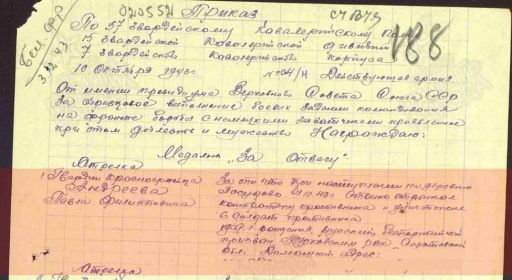 020554 Приказ
188
Бел. фр
3.12.43
По 57 Гвардейскому Кавалерийскому Полку
15 Гвардейской Кавалерийской дивизии
7 Гвардейского Кавалерийского корпуса
10 Октября 1943г. № 04/Н Действующая армия
От имени президиума Верховного Совета Союза ССР
За образцовое выполнение боевых заданий командования
на фронте борьбы с немецкими захватчиками проявленные
при этом доблесть и мужество Награждаю:
Медалью „За Отвагу"
Стрелка
1 Гвардии красноармейца
Андреева
Павла Филипповича
За то что при наступлении на деревню
Посудово стойко отражал
контратаку противника и уничтожил
6 солдат противника
год. рождения, русский, беспартийный
призван Турковским рвк Саратовской
обл. Домашний адрес:
Стрелка